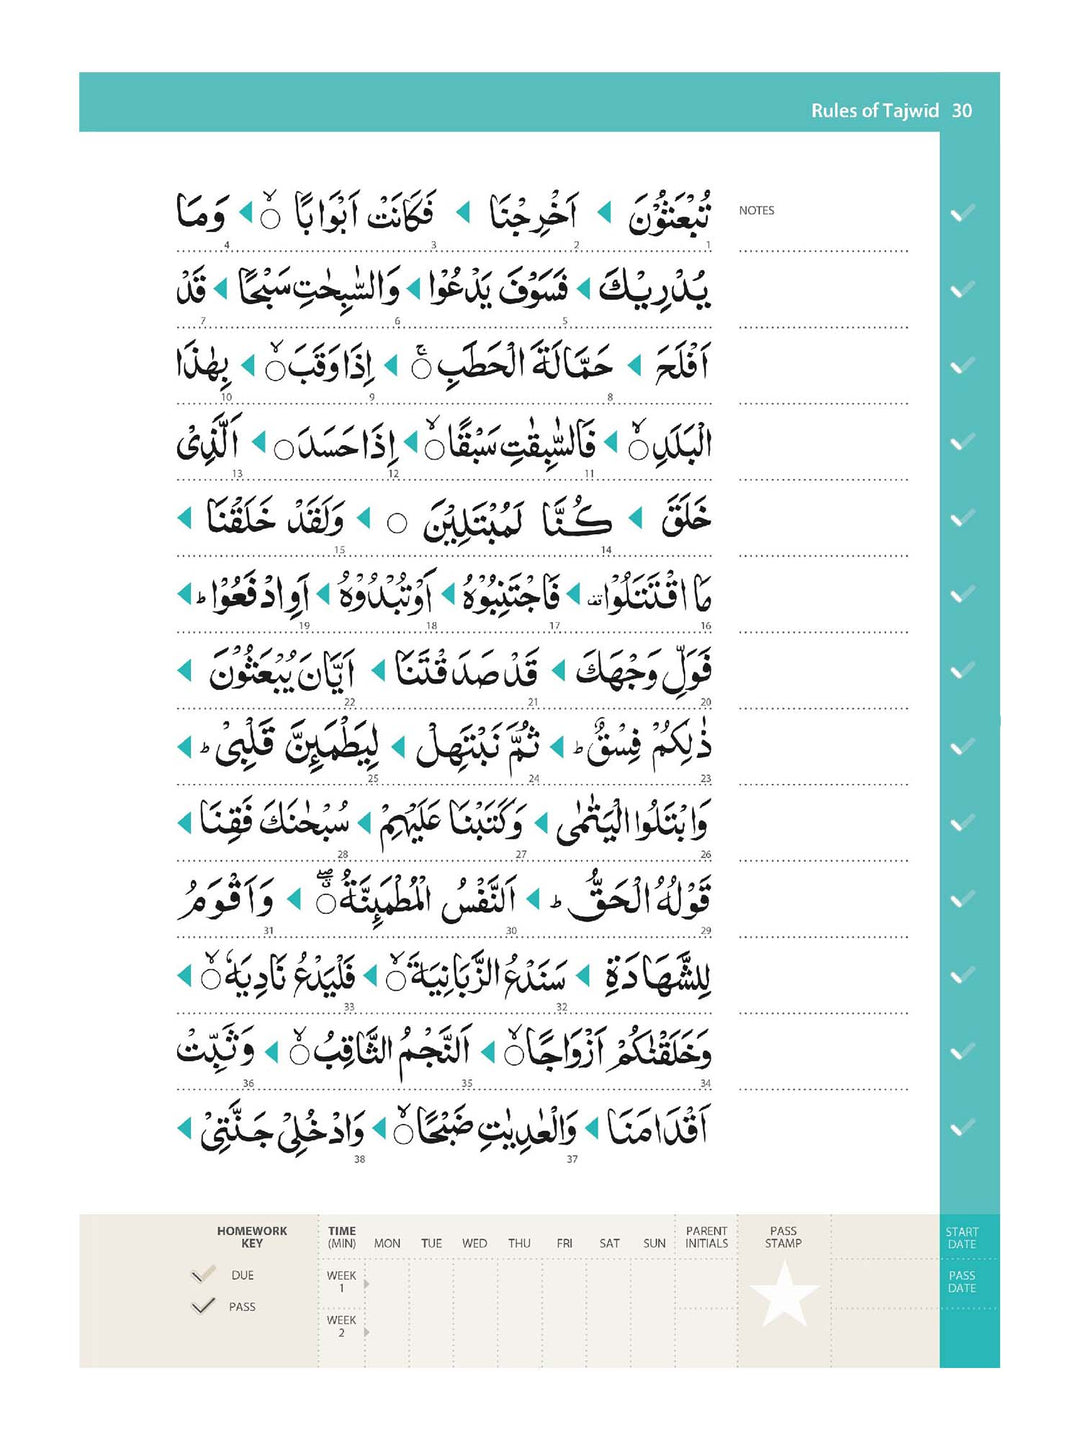 Rules of Tajwid 30
تُبْعَثُوْنَ ◀ اَخْرِجْنَا ◀ فَكَانَتْ اَبْوَابًا ۙ○ ◀ وَمَا
NOTES
1 2 3 4
يُدْرِيْكَ ◀ فَسَوْفَ يَدْعُوْا ◀ وَالسّٰبِحٰتِ سَبْحًا ◀ قَدْ
5 6 7
اَفْلَحَ ◀ حَمَّالَةَ الْحَطَبِ ۚ○ ◀ اِذَا وَقَبَ ۙ○ ◀ بِهٰذَا
8 9 10
الْبَلَدِ ۙ○ ◀ فَالسّٰبِقٰتِ سَبْقًا ۙ○ ◀ اِذَا حَسَدَ ○ ◀ اَلَّذِىْ
11 12 13
خَلَقَ ◀ كُنَّا لَمُبْتَلِيْنَ ○ ◀ وَلَقَدْ خَلَقْنَا ◀
14 15
مَا اقْتَتَلُوْا قف ◀ فَاجْتَنِبُوْهُ ◀ اَوْ تُبْدُوْهُ ◀ اَوِ ادْفَعُوْا ط ◀
16 17 18 19
فَوَلِّ وَجْهَكَ ◀ قَدْ صَدَقْتَنَا ◀ اَيَّانَ يُبْعَثُوْنَ ◀
20 21 22
ذٰلِكُمْ فِسْقٌ ط ◀ ثُمَّ نَبْتَهِلْ ◀ لِيَطْمَئِنَّ قَلْبِىْ ط ◀
23 24 25
وَابْتَلُوا الْيَتٰمٰى ◀ وَكَتَبْنَا عَلَيْهِمْ ◀ سُبْحٰنَكَ فَقِنَا ◀
26 27 28
قَوْلُهُ الْحَقُّ ط ◀ اَلنَّفْسُ الْمُطْمَئِنَّةُ ۖۗ○ ◀ وَاَقْوَمُ
29 30 31
لِلشَّهَادَةِ ◀ سَنَدْعُ الزَّبَانِيَةَ ۙ○ ◀ فَلْيَدْعُ نَادِيَهٗ ۙ○ ◀
32 33
وَخَلَقْنٰكُمْ اَزْوَاجًا ۙ○ ◀ اَلنَّجْمُ الثَّاقِبُ ۙ○ ◀ وَثَبِّتْ
34 35 36
اَقْدَامَنَا ◀ وَالْعٰدِيٰتِ ضَبْحًا ۙ○ ◀ وَادْخُلِىْ جَنَّتِىْ ◀
37 38
HOMEWORK KEY
DUE
PASS
TIME (MIN) MON TUE WED THU FRI SAT SUN PARENT INITIALS PASS STAMP START DATE
WEEK 1
PASS DATE
WEEK 2